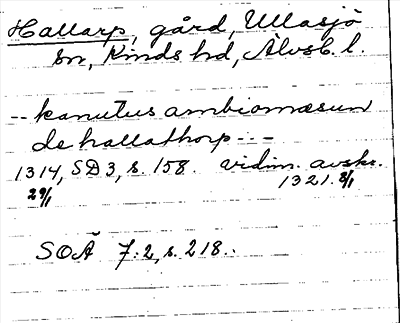 Hallarp, gård, Ullasjö
sn, Kinds hd, Älvsb. l.
-- kanutus ambiornæsun
de hallathorp - - -
1314, SD 3, s. 158. vidim. avskr.
29/1 1321 8/1
SOÄ 7:2, s. 218.